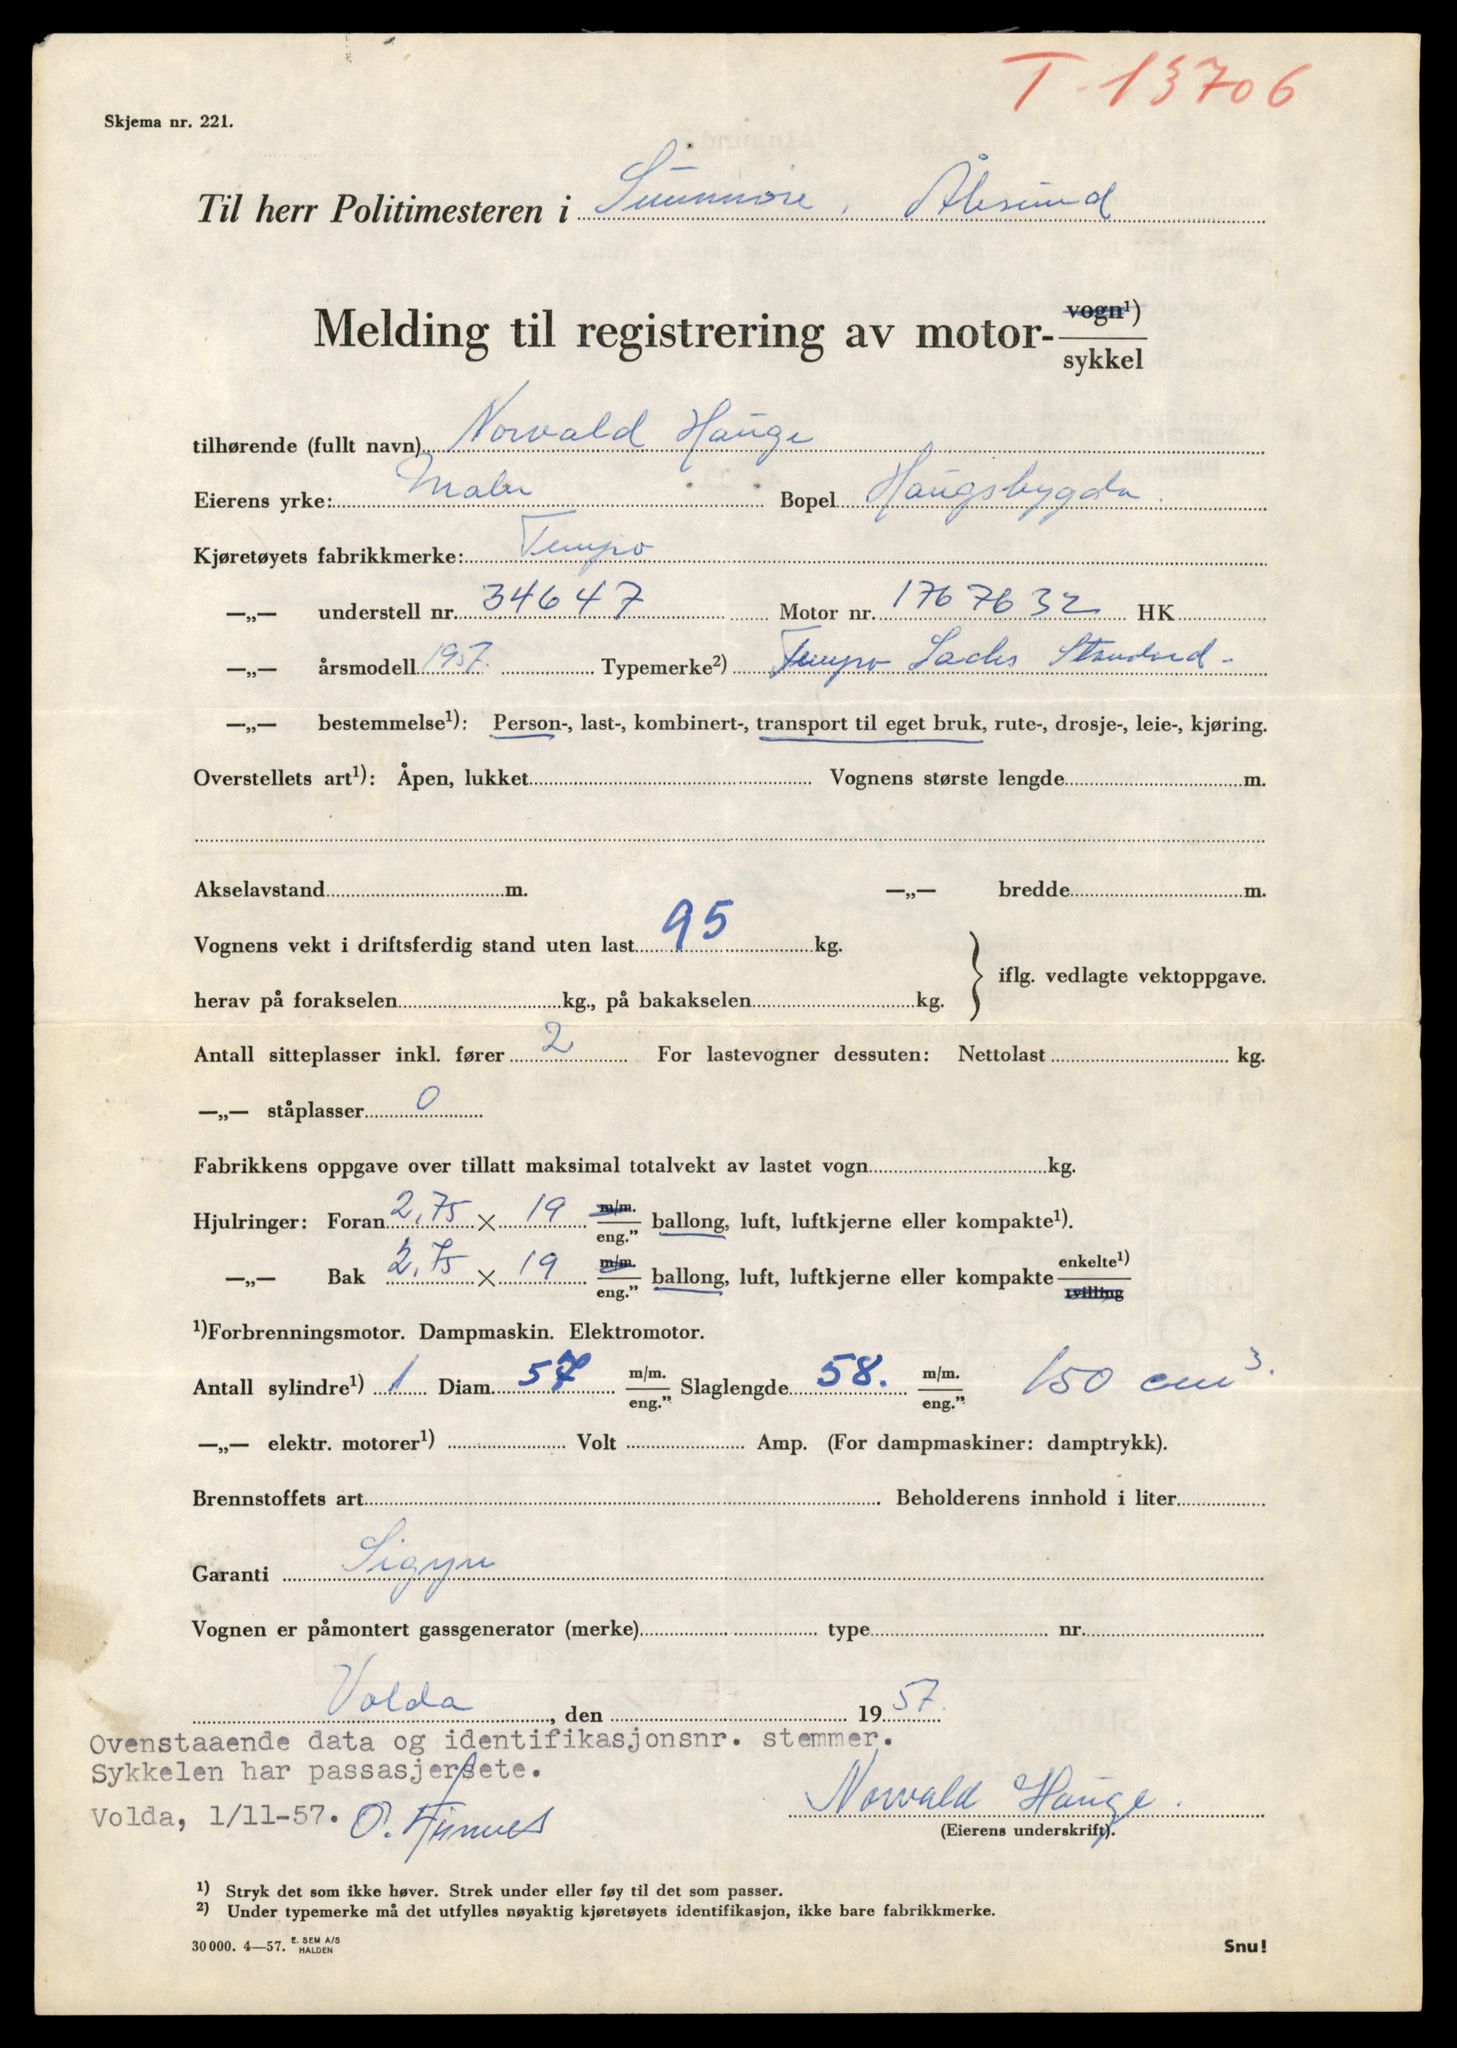 T-13706
Skjema nr. 221.
Til herr Politimesteren i Sunnmøre, Ålesund
Melding til registrering av motor- vogn¹) sykkel
tilhørende (fullt navn) Norvald Hauge
Eierens yrke: Maler Bopel Haugsbygda.
Kjøretøyets fabrikkmerke: Tempo
—„— understell nr. 34647 Motor nr. 1767632 HK
—„— årsmodell 1957. Typemerke²) Tempo Sachs Standard-
—„— bestemmelse¹): Person-, last-, kombinert-, transport til eget bruk, rute-, drosje-, leie-, kjøring.
Overstellets art¹): Åpen, lukket Vognens største lengde m.
Akselavstand m. —„— bredde m.
Vognens vekt i driftsferdig stand uten last 95 kg.
iflg. vedlagte vektoppgave.
herav på forakselen kg., på bakakselen kg.
Antall sitteplasser inkl. fører 2 For lastevogner dessuten: Nettolast kg.
—„— ståplasser 0
Fabrikkens oppgave over tillatt maksimal totalvekt av lastet vogn kg.
Hjulringer: Foran 2,75 × 19 m/m. eng.” ballong, luft, luftkjerne eller kompakte¹).
—„— Bak 2,75 × 19 m/m. eng.” ballong, luft, luftkjerne eller kompakte enkelte¹) tvilling
¹)Forbrenningsmotor. Dampmaskin. Elektromotor.
Antall sylindre¹) 1 Diam. 57 m/m. eng.” Slaglengde 58. m/m. eng.” 150 cm³.
—„— elektr. motorer¹) Volt Amp. (For dampmaskiner: damptrykk).
Brennstoffets art. Beholderens innhold i liter
Garanti Sigyn
Vognen er påmontert gassgenerator (merke) type nr.
Volda, den 1957.
Ovenstaaende data og identifikasjonsnr. stemmer.
Sykkelen har passasjersete.
Volda, 1/11-57. O.
Norvald Hauge.
(Eierens underskrift).
¹) Stryk det som ikke høver. Strek under eller føy til det som passer.
²) Under typemerke må det utfylles nøyaktig kjøretøyets identifikasjon, ikke bare fabrikkmerke.
30 000. 4—57. E. SEM A/S HALDEN
Snu!